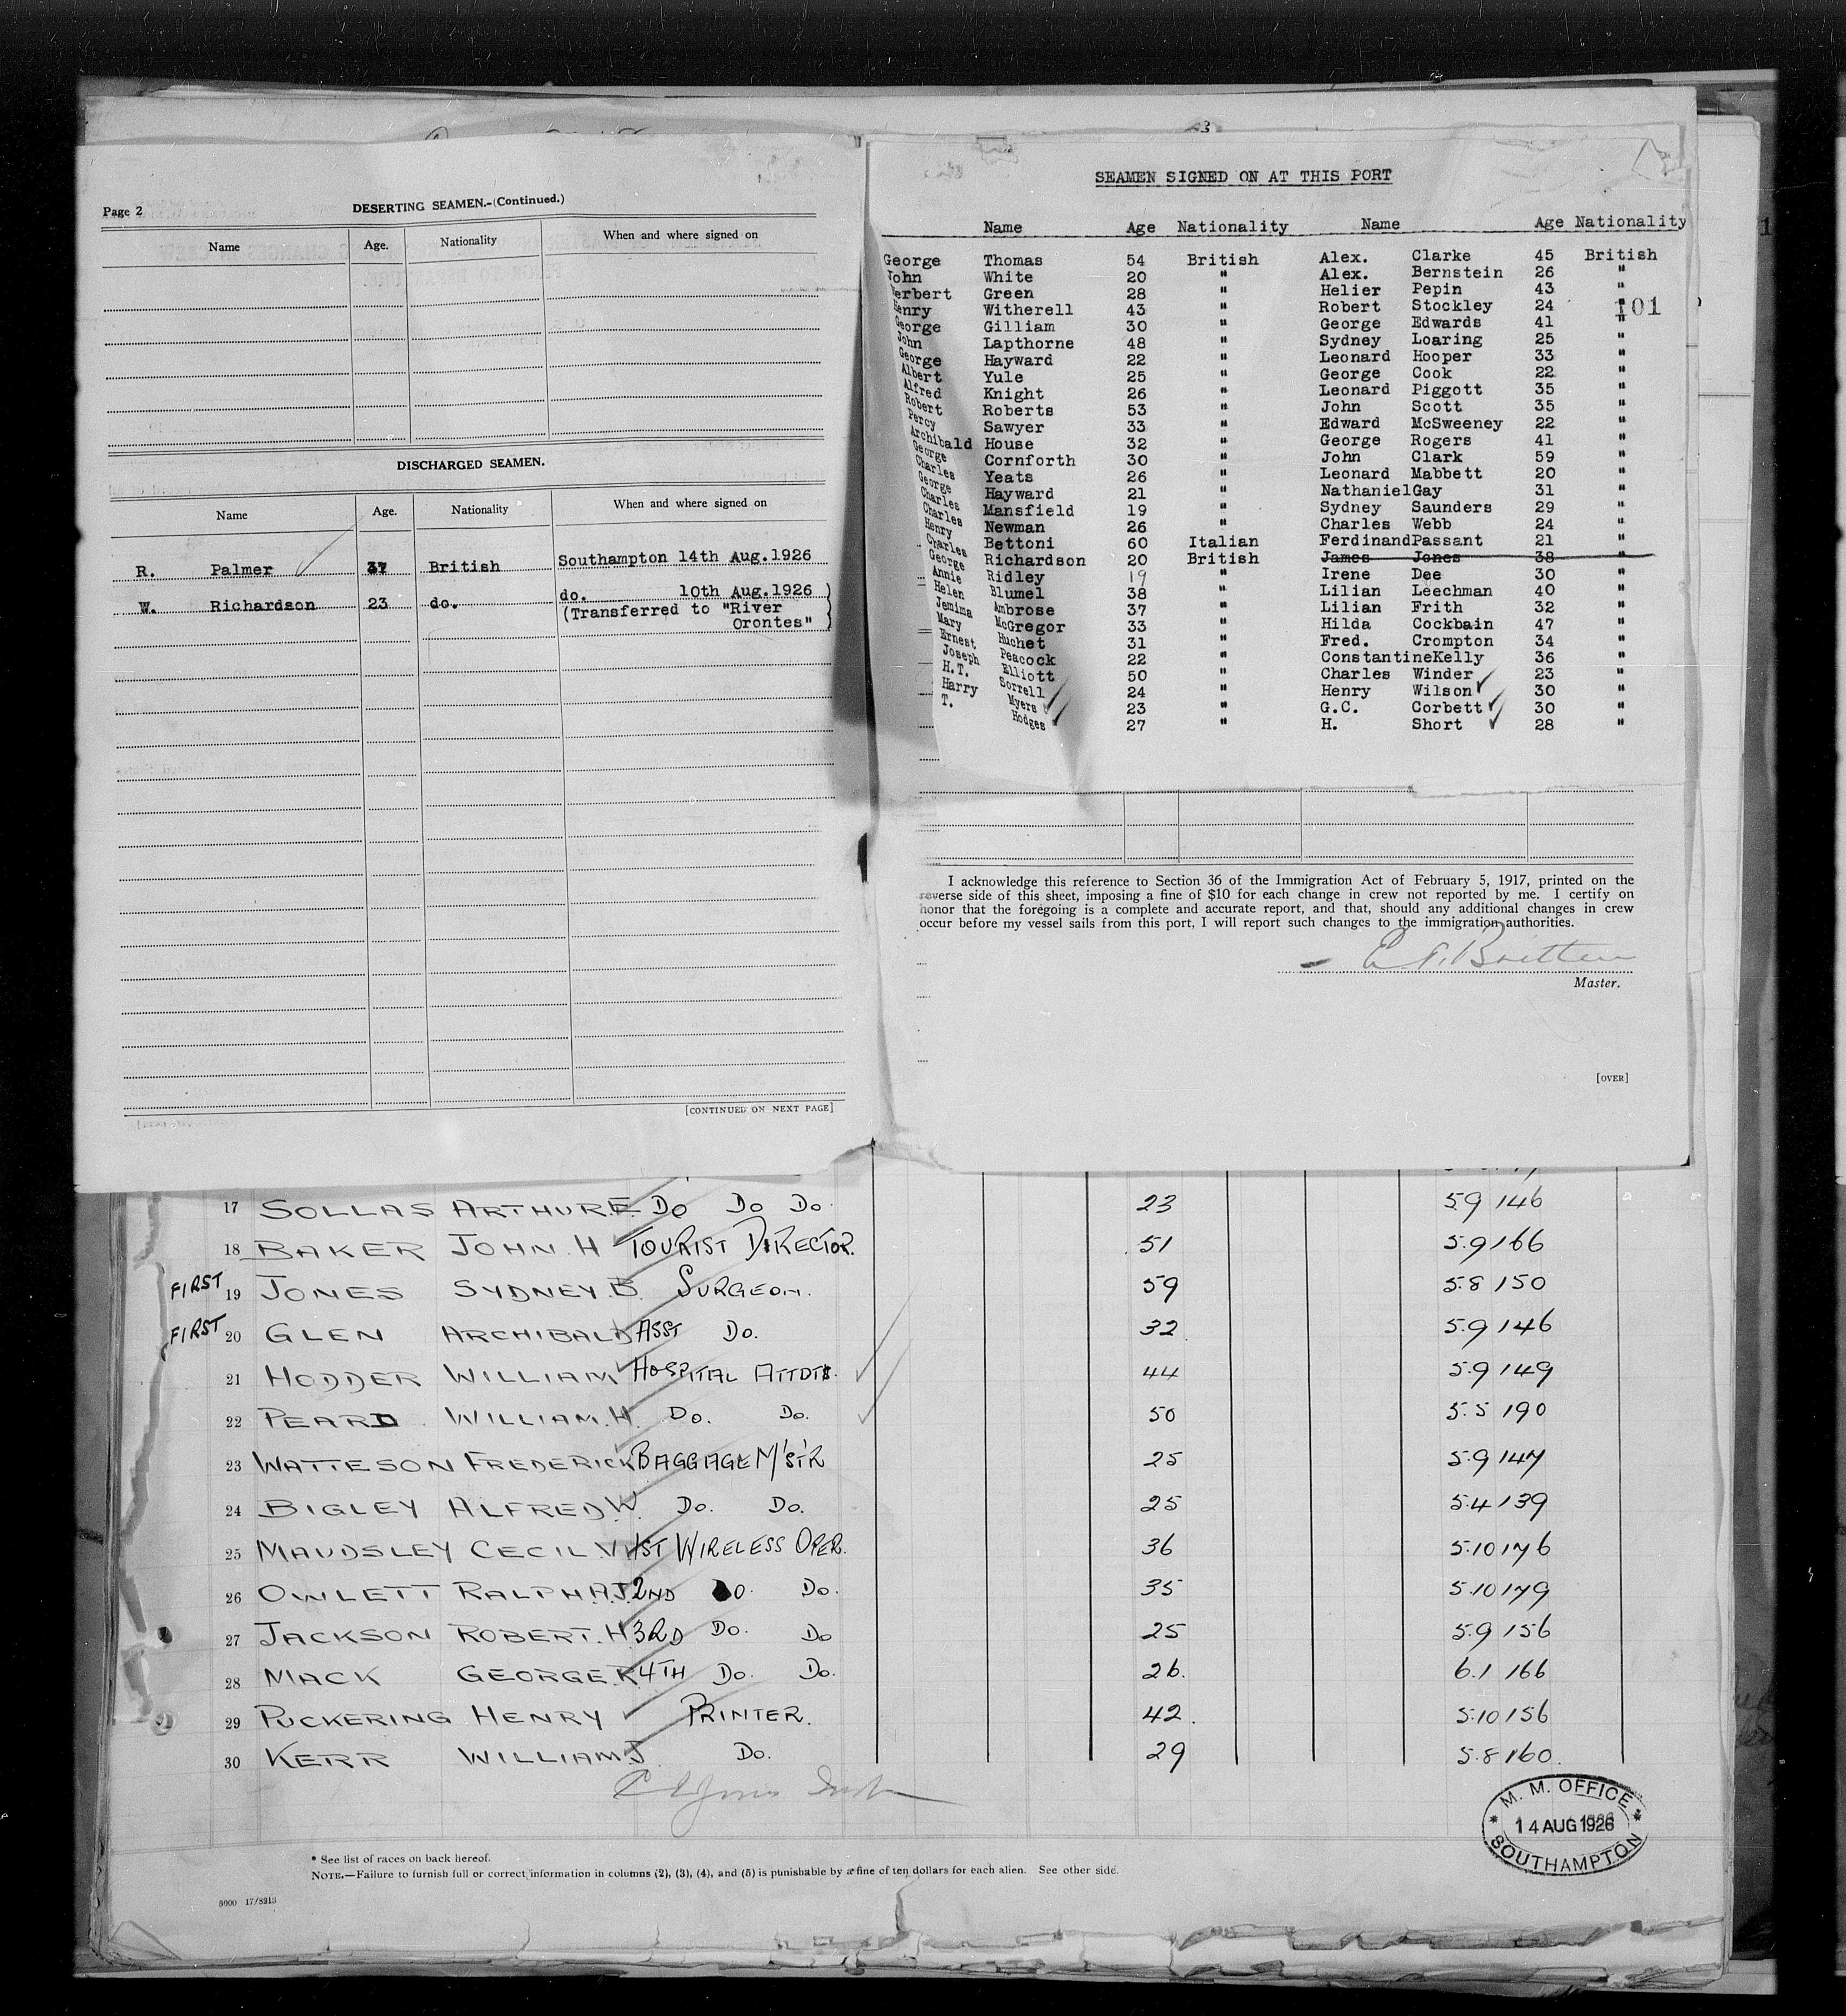 Page 2
DESERTING SEAMEN.-(Continued.)
Name Age. Nationality When and where signed on
DISCHARGED SEAMEN.
Name Age. Nationality When and where signed on
R. Palmer 37 British Southampton 14th Aug.1926
W. Richardson 23 do. do. 10th Aug.1926
(Transferred to "River
Orontes"
[CONTINUED ON NEXT PAGE]
3
SEAMEN SIGNED ON AT THIS PORT
Name Age Nationality Name Age Nationality
George Thomas 54 British Alex. Clarke 45 British
John White 20 " Alex. Bernstein 26 "
Herbert Green 28 " Helier Pepin 43 "
Henry Witherell 43 " Robert Stockley 24 "
101
George Gilliam 30 " George Edwards 41 "
John Lapthorne 48 " Sydney Loaring 25 "
George Hayward 22 " Leonard Hooper 33 "
Albert Yule 25 " George Cook 22 "
Alfred Knight 26 " Leonard Piggott 35 "
Robert Roberts 53 " John Scott 35 "
Percy Sawyer 33 " Edward McSweeney 22 "
Archibald House 32 " George Rogers 41 "
George Cornforth 30 " John Clark 59 "
Charles Yeats 26 " Leonard Mabbett 20 "
George Hayward 21 " Nathaniel Gay 31 "
Charles Mansfield 19 " Sydney Saunders 29 "
Charles Newman 26 " Charles Webb 24 "
Henry Bettoni 60 Italian Ferdinand Passant 21 "
Charles Richardson 20 British James Jones 38 "
George Ridley 19 " Irene Dee 30 "
Annie Blumel 38 " Lilian Leechman 40 "
Helen Ambrose 37 " Lilian Frith 32 "
Jemima McGregor 33 " Hilda Cockbain 47 "
Mary Huchet 31 " Fred. Crompton 34 "
Ernest Peacock 22 " Constantine Kelly 36 "
Joseph Elliott 50 " Charles Winder 23 "
H.T. Sorrell 24 " Henry Wilson 30 "
Harry Myers 23 " G.C. Corbett 30 "
T. Hodges 27 " H. Short 28 "
I acknowledge this reference to Section 36 of the Immigration Act of February 5, 1917, printed on the
reverse side of this sheet, imposing a fine of $10 for each change in crew not reported by me. I certify on
honor that the foregoing is a complete and accurate report, and that, should any additional changes in crew
occur before my vessel sails from this port, I will report such changes to the immigration authorities.
Britten
Master.
[OVER]
17 SOLLAS ARTHUR.E. DO DO DO. 23 5.9 146
18 BAKER JOHN.H TOURIST DIRECTOR. 51 5.9 166
FIRST 19 JONES SYDNEY.B. SURGEON. 59 5.8 150
FIRST 20 GLEN ARCHIBALD ASST DO. 32 5.9 146
21 HODDER WILLIAM HOSPITAL ATTDTS. 44 5.9 149
22 PEARD WILLIAM.H. DO. DO. 50 5.5 190
23 WATTESON FREDERICK BAGGAGE M'ST'R 25 5.9 147
24 BIGLEY ALFRED.W. DO. DO. 25 5.4 139
25 MAUDSLEY CECIL.W 1ST WIRELESS OPER. 36 5.10 176
26 OWLETT RALPH.A.J. 2ND DO. DO. 35 5.10 179
27 JACKSON ROBERT.H 3RD DO. DO 25 5.9 156
28 MACK GEORGE.R. 4TH DO. DO. 26. 6.1 166
29 PUCKERING HENRY PRINTER. 42. 5.10 156
30 KERR WILLIAM J DO. 29 5.8 160.
M. M. OFFICE
14 AUG 1926
SOUTHAMPTON
* See list of races on back hereof.
NOTE.—Failure to furnish full or correct information in columns (2), (3), (4), and (5) is punishable by a fine of ten dollars for each alien. See other side.
5000 17/8213